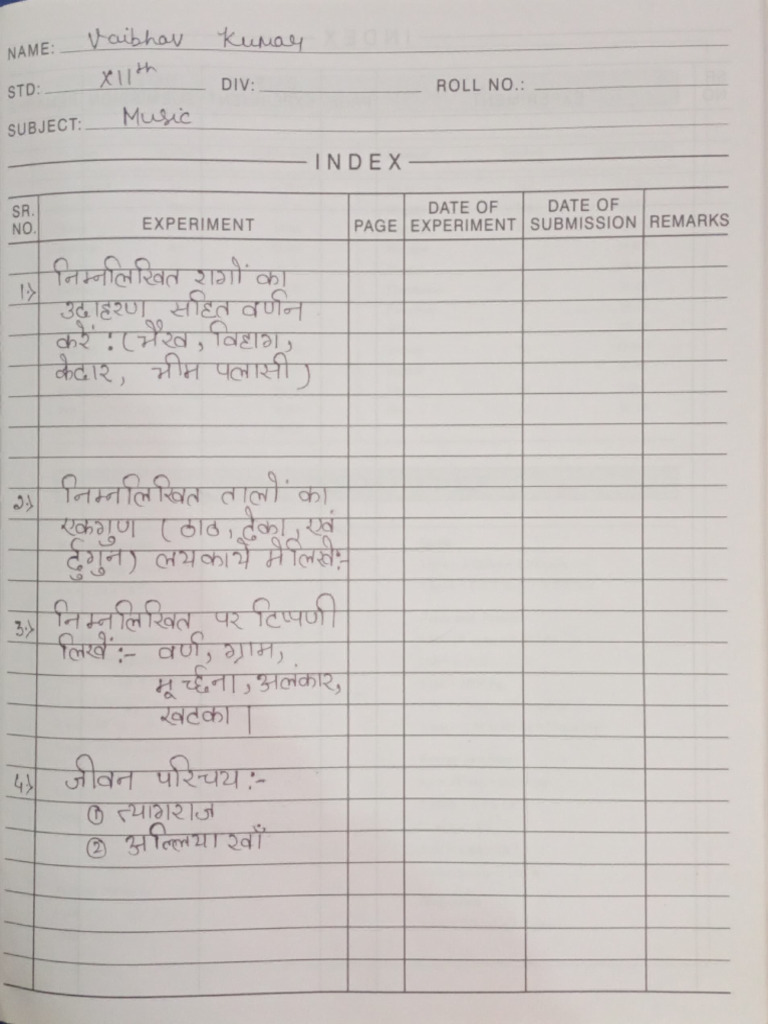 NAME: Vaibhav Kumar
STD: XIIth DIV: ROLL NO.:
SUBJECT: Music
INDEX
SR. NO. EXPERIMENT PAGE DATE OF EXPERIMENT DATE OF SUBMISSION REMARKS
1:) निम्नलिखित रागों का
उदाहरण सहित वर्णन
करें :(भैरव, विहाग,
केदार, भीम पलासी)
2:) निम्नलिखित तालों का
एकगुण (ठाठ, ठेका, एवं
र्दुगुन) लयकार्य मे लिखे:-
3:) निम्नलिखित पर टिप्पणी
लिखें:- वर्ण, ग्राम,
मूर्च्छना, अलंकार,
खटका |
4:) जीवन परिचय:-
① त्यागराज
② अल्लिया खाँ